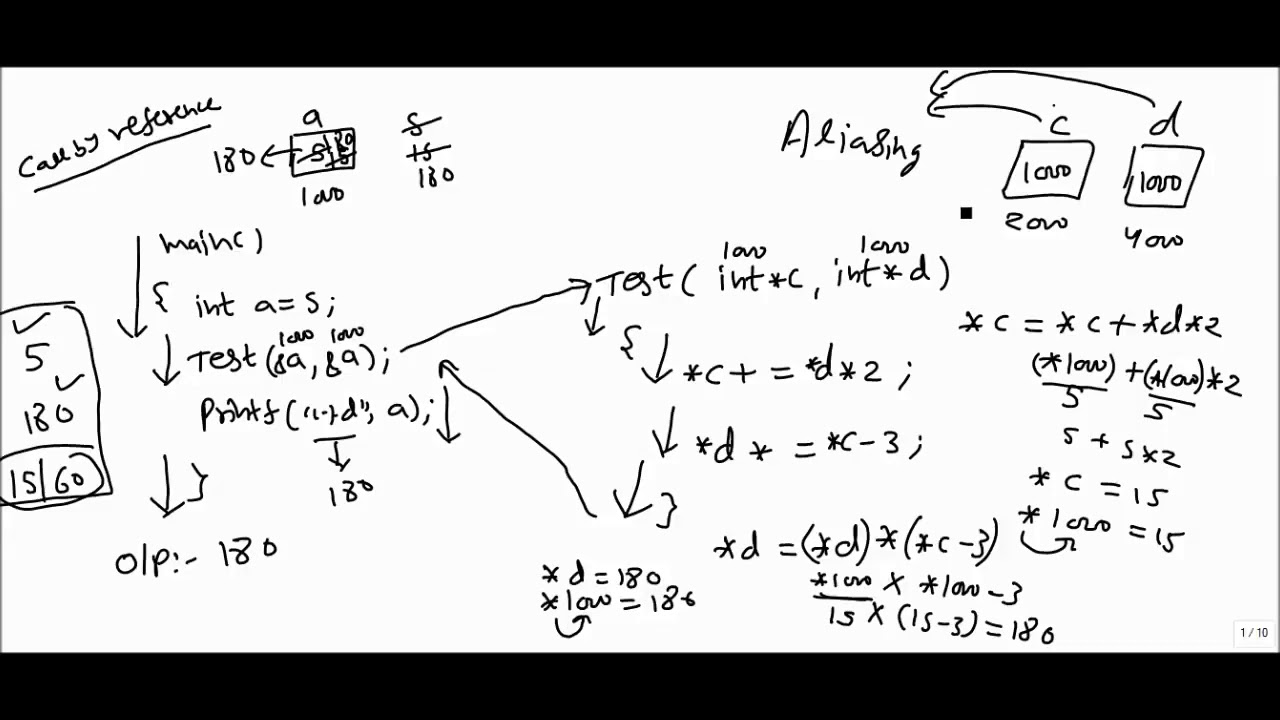 Call by reference
a
5 15 180
180
1000
5
15
180
main()
{ int a = 5;
1000 1000
Test(&a, &a);
printf("%d", a);
180
}
O/P:- 180
5
180
15/60
Aliasing
c d
1000 1000
2000 4000
1000 1000
Test( int *c, int *d)
{
*c + = *d * 2 ;
*d * = *c - 3 ;
}
*c = *c + *d * 2
(*1000) + (*1000) * 2
5 5
5 + 5 * 2
*c = 15
*1000 = 15
*d = (*d) * (*c - 3)
*1000 X *1000 - 3
15 X (15 - 3) = 180
*d = 180
*1000 = 180
1 / 10